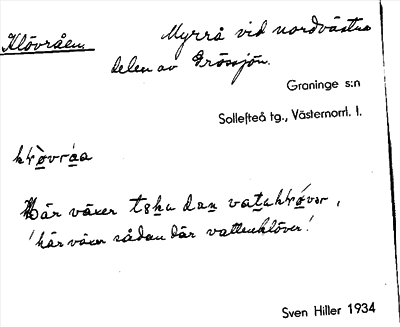 Klövråen
Myrrå vid nordvästra
delen av Grössjön.
Graninge s:n
Sollefteå tg., Västernorrl. l.
här växer
'här växer sådan där vattenklöver'.
Sven Hiller 1934